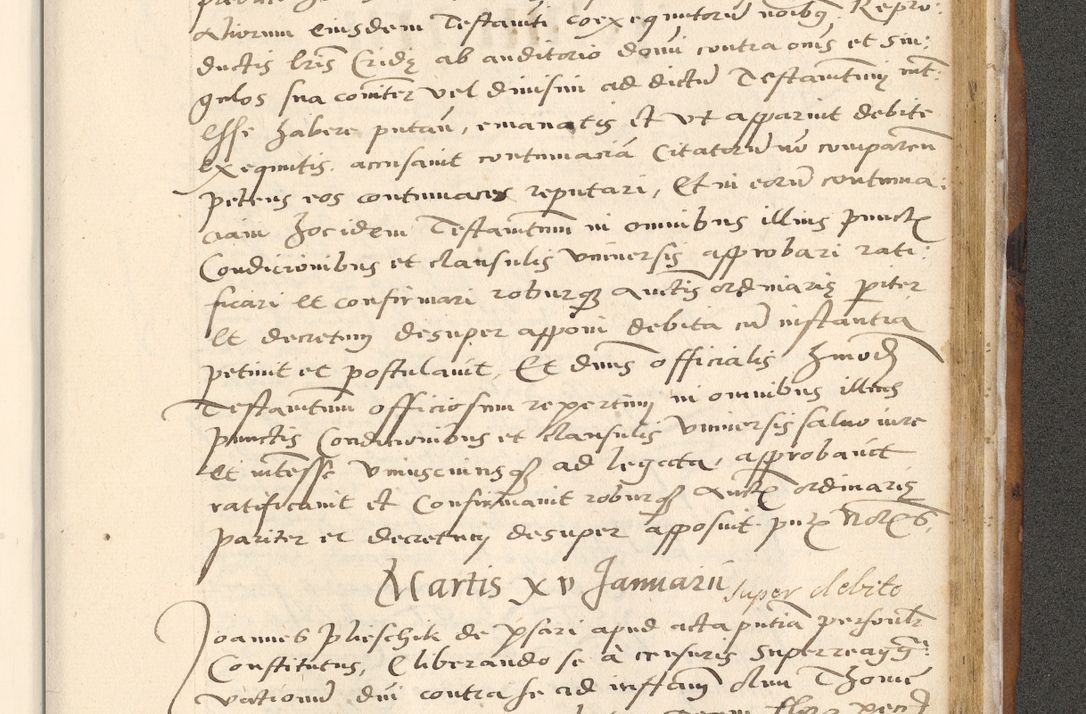 aliorum eiusdem Testamti coexequutorum noibus, Repro:
ductis lris Cridę ab auditorio domi contra oms et sin:
gulos sua comiter vel diuisim ad dictum Testamtum int:
Esse habere putan, emanatis et vt apparuit debite
Exequutis. accusauit contumaciã Citatorum nõ comparen
petens eos contumaces reputari, Et in eorum contuma:
ciam hoc idem Testamtum in omnibus illius punct
Condicionibus et clausulis vniuersis approbari rati:
ficari et confirmari roburq auctis ordinarię piter
Et decretum desuper apponi debita cũ instantia
petiuit et postulauit, Et dnus officialis hmodi
Testamtum officiosum repertum in omnibus illius
punctis Condicionibus et clausulis vniuersis saluo iure
Et intesse vniuscuiusq ad legata, approbauit
ratificauit et Confirmauit roburq auct ordinarię
pariter et decretum desuper apposuit. pnt Nor
Martis xv Januarii super debito
Joannes Plieschik de psari apud acta putia psonlr
Constitutus, Et liberando se à censuris superreagg:
vationum dni contra se ad instam olim Thome